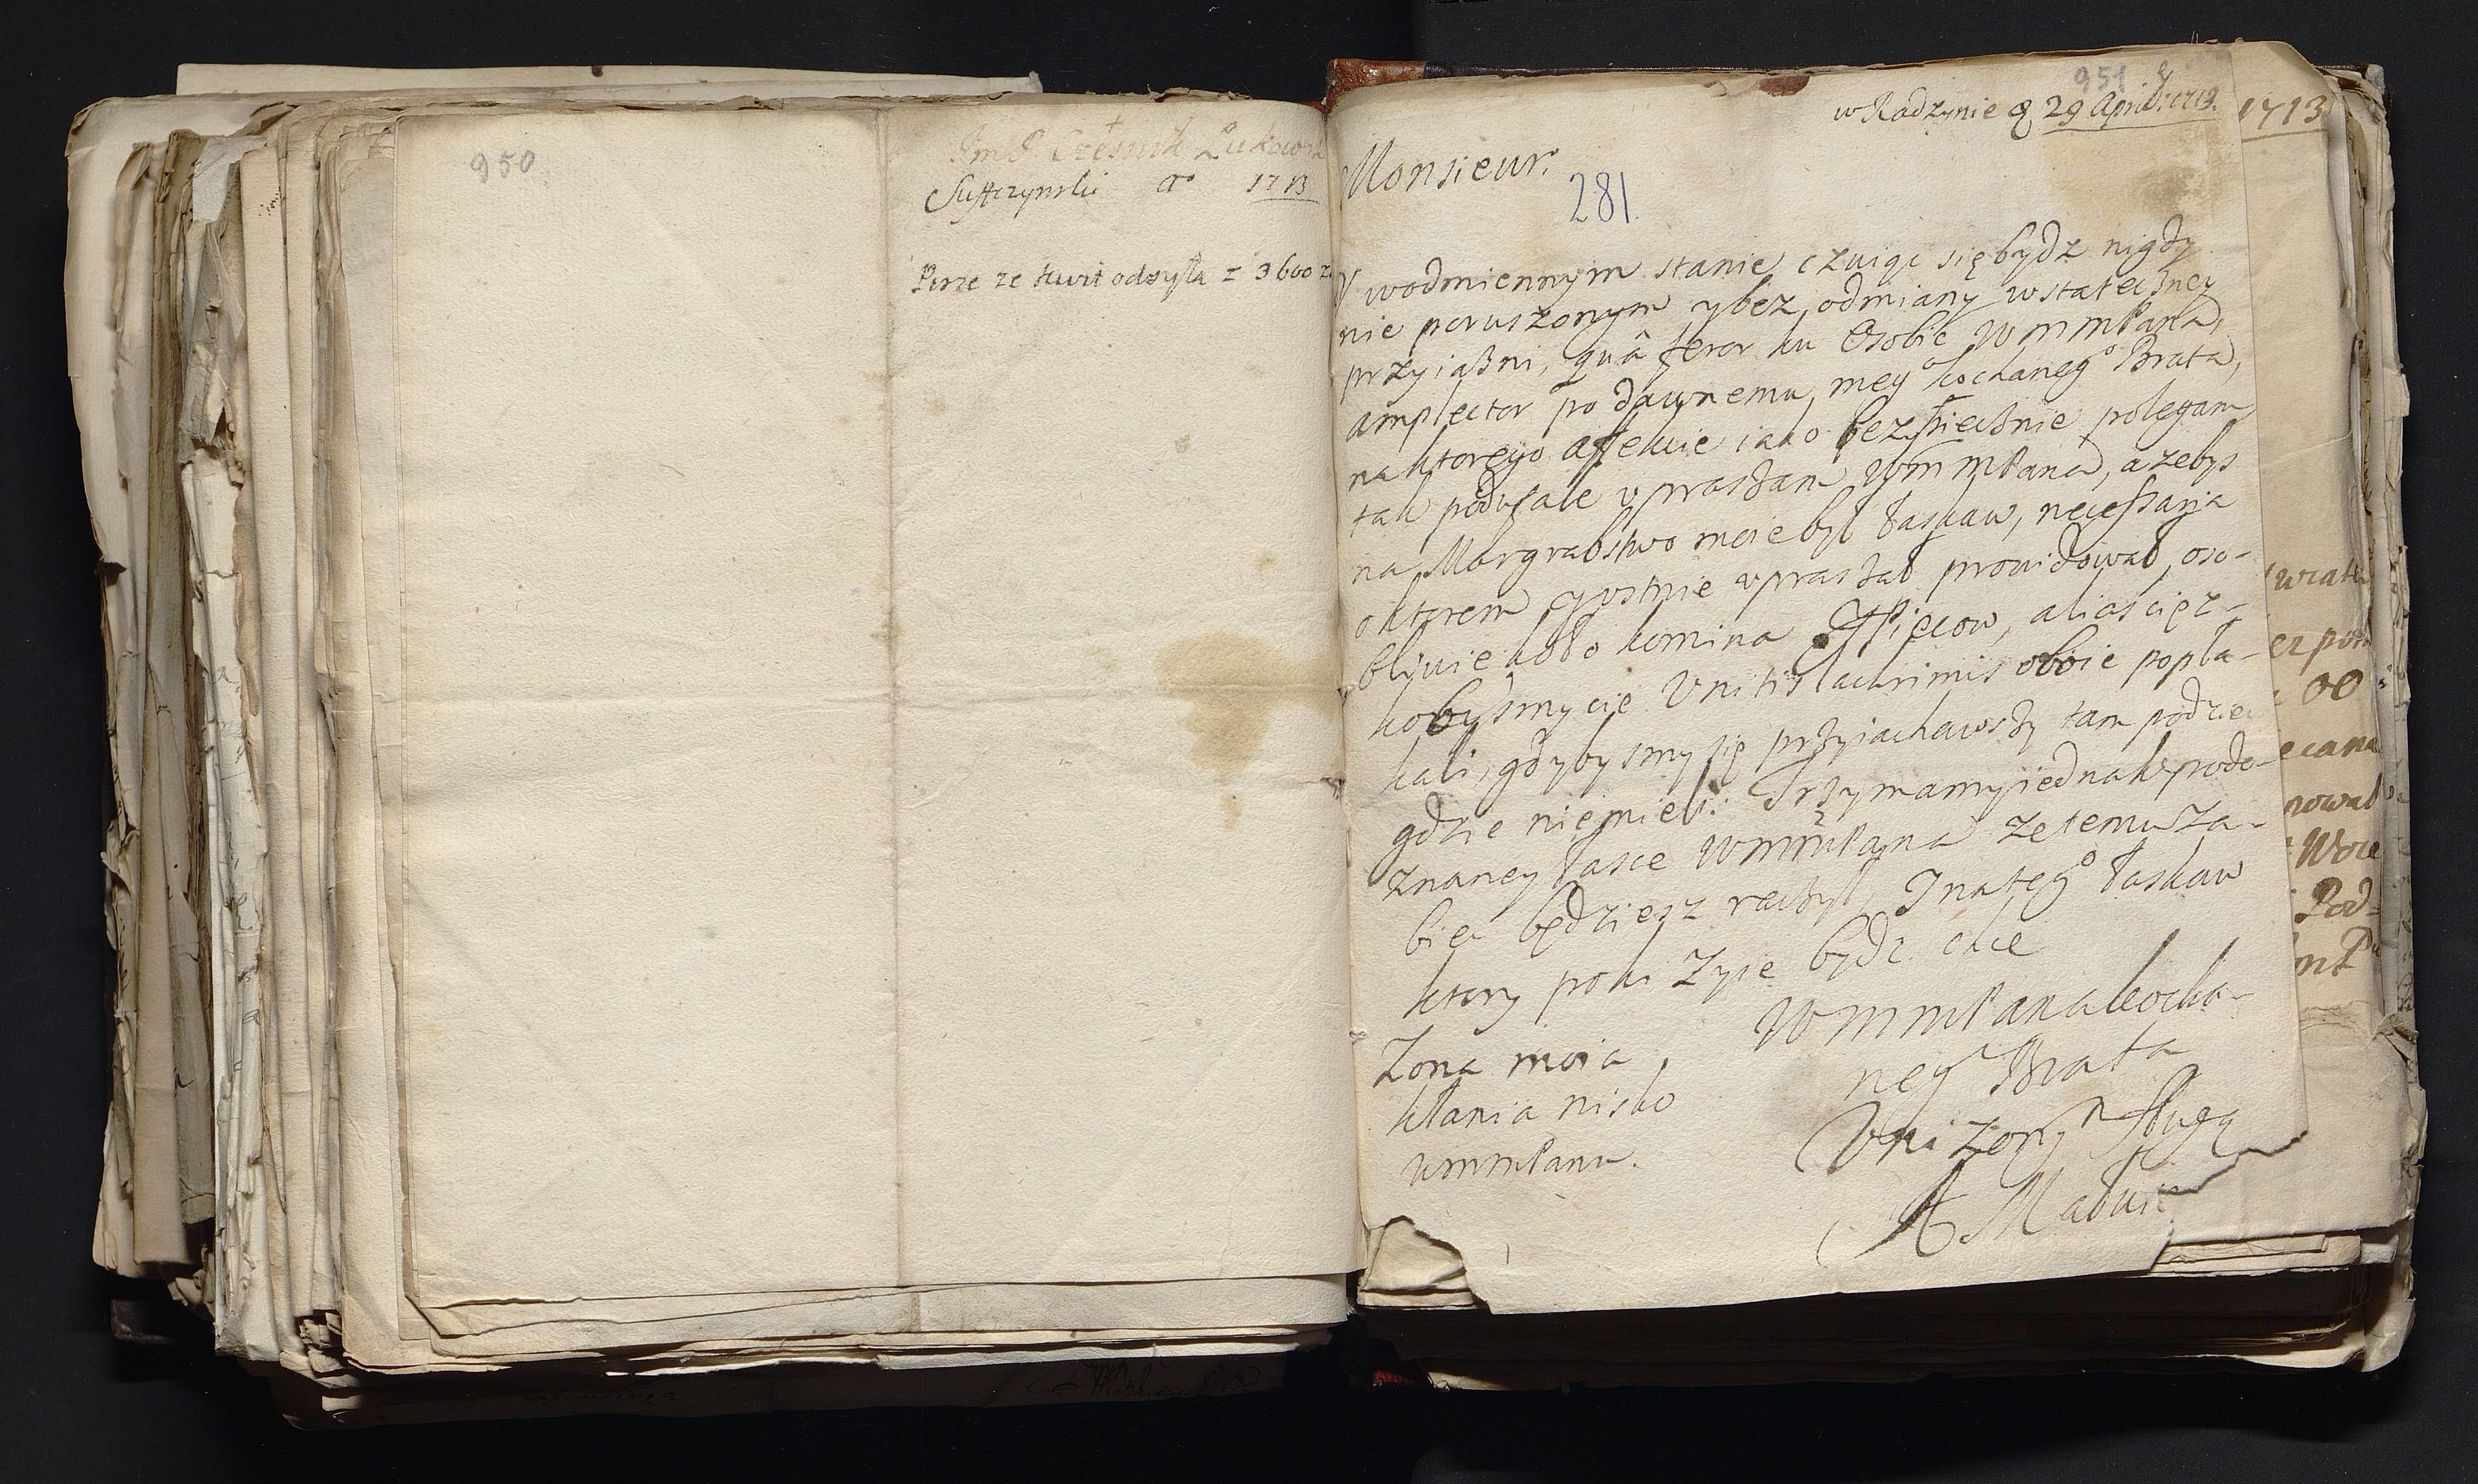 950
JmP Cześnik Łukowsk
Suffczynski Ao 1713
Pisze ze kwit odsyła z 3600
951
w Radzynie d 29 April: 1713.
1713
Monsieur.
281.
W wodmiennym stanie czuiąc się bydz nigdy
nie poruszonym y bez odmiany wstateczney
przyiaźni, quâ feror ku Osobie WmmPana,
amplector po dawnemu mego kochanego Brata,
na ktorego affekcie iako bezpiecznie polegam
tak poufale vpraszam WmmPana, azebys
na Margrabstwo moie był łaskaw, necessaria
o ktorem y vstnie vpraszał prowidował, oso-
bliwie koło komina y Piecow, alias cięz-
kobysmy cię Vnitis lachrimis oboie popła-
kali, gdybysmy się przyiachawszy tam podziec
gdzie niemieli. Trzymamy iednak o podo-
znaney łasce WmmPana ze temu za-
biec będziesz raczył, J na tego łaskaw
ktory poki Zyie bydz chce
WmmPana kocha-
nego Brata
Vnizonym sługą
Zona moia
kłania nisko
WmmPanu.
ecana
nowal
Pod-